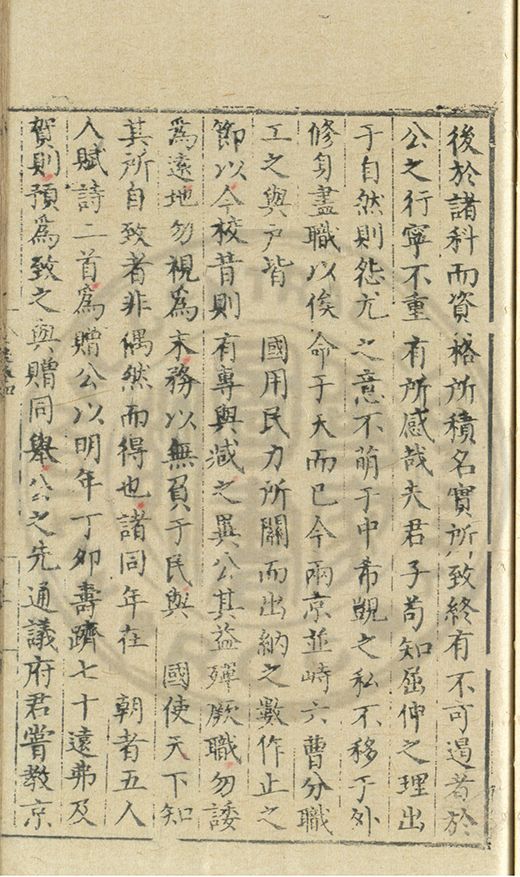 後於諸科而資格所積名實所致終有不可遏者於
公之行寧不重有所感哉夫君子苟知屈伸之理出
于自然則怨尤之意不萌于中希覬之私不移于外
修身盡職以俟命于天而已今兩京並峙六曹分職
工之與戶皆 國用民力所關而出納之數作止之
節以今校昔則有專與減之異公其益殫厥職勿諉
為遠地勿視為末務以無負于民與 國使天下知
其所自致者非偶然而得也諸同年在 朝者五人
人賦詩二首為贈公以明年丁卯壽躋七十遠弗及
賀則預為致之與贈同舉公之先通議府君嘗教京